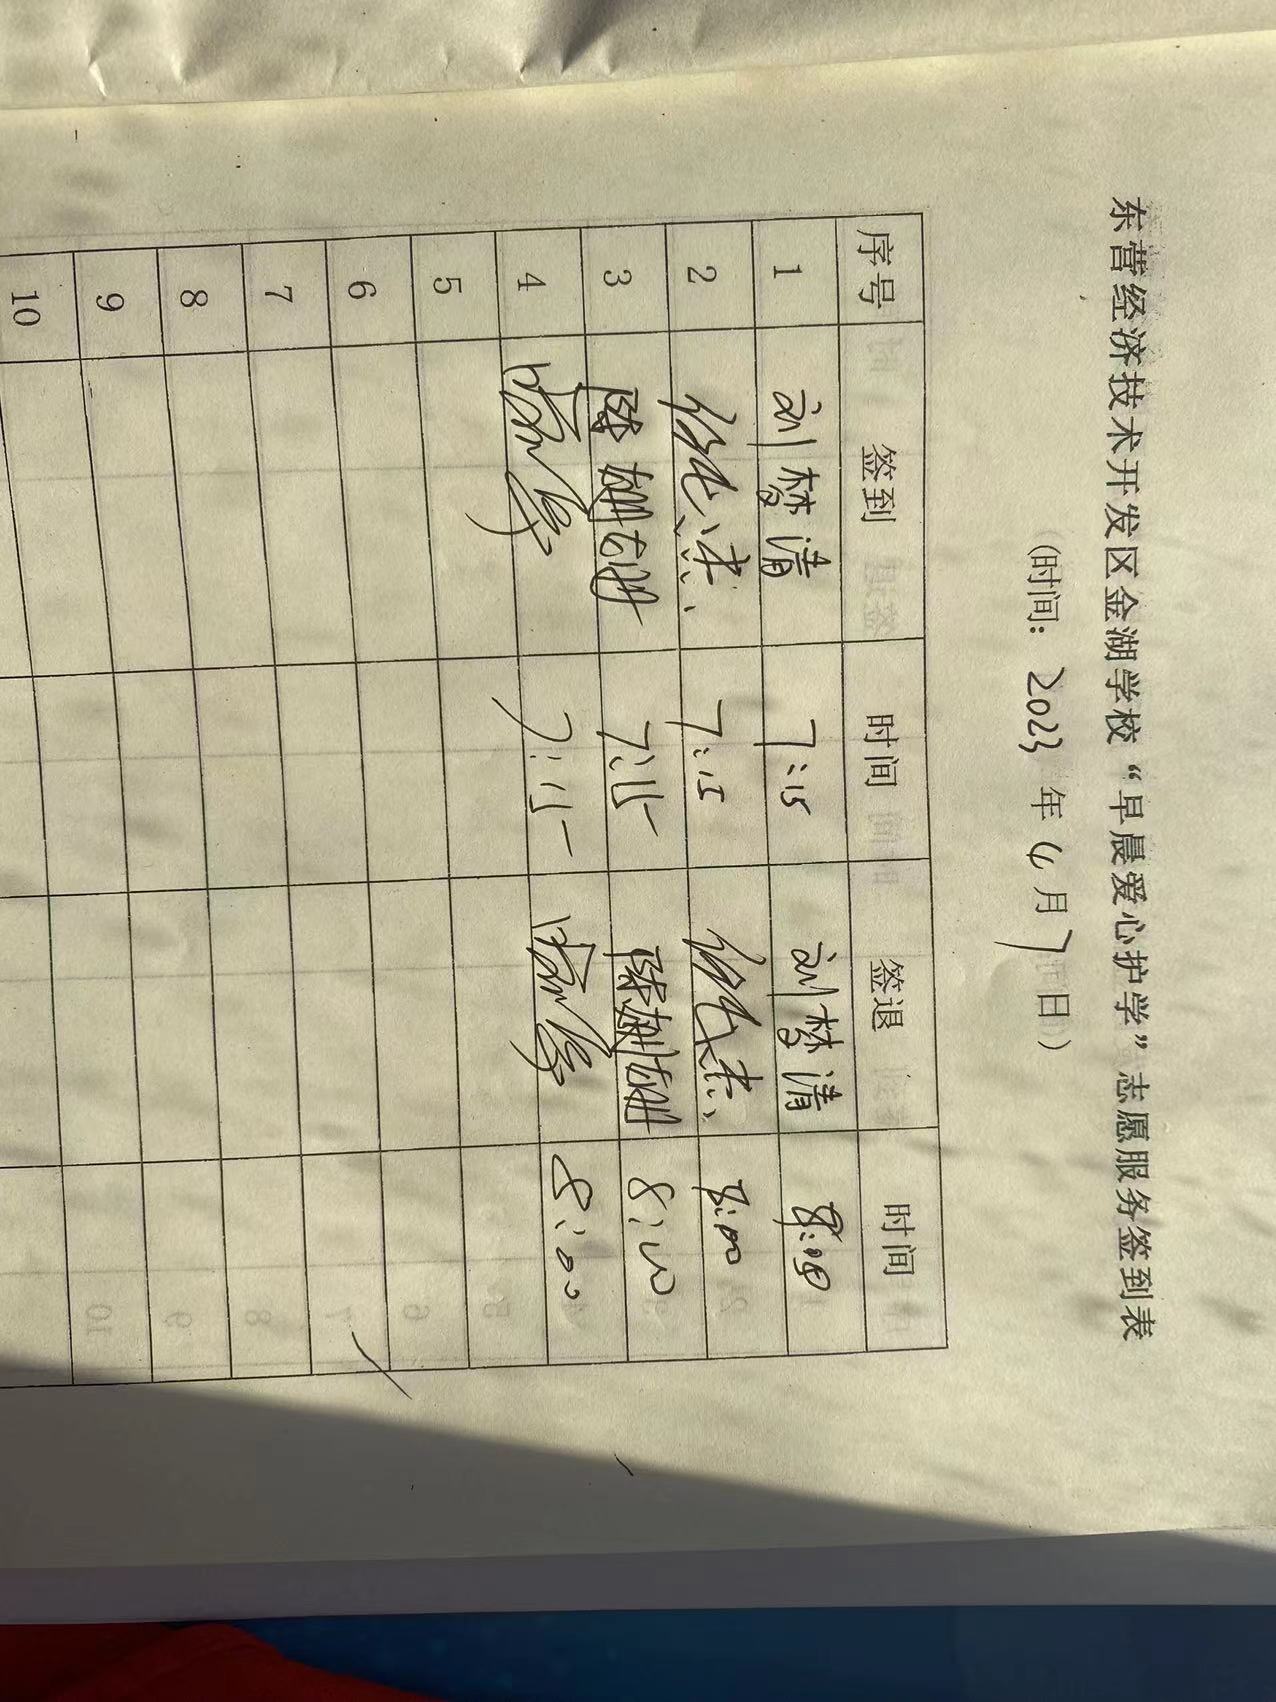 东营经济技术开发区金湖学校“早晨爱心护学”志愿服务签到表
(时间: 2023 年 4 月 7 日)
序号 签到 时间 签退 时间
1 刘梦清 7:15 刘梦清 8:00
2 7:15 8:00
3 陈姗姗 7:15 陈姗姗 8:00
4 7:15 8:00
5
6
7
8
9
10